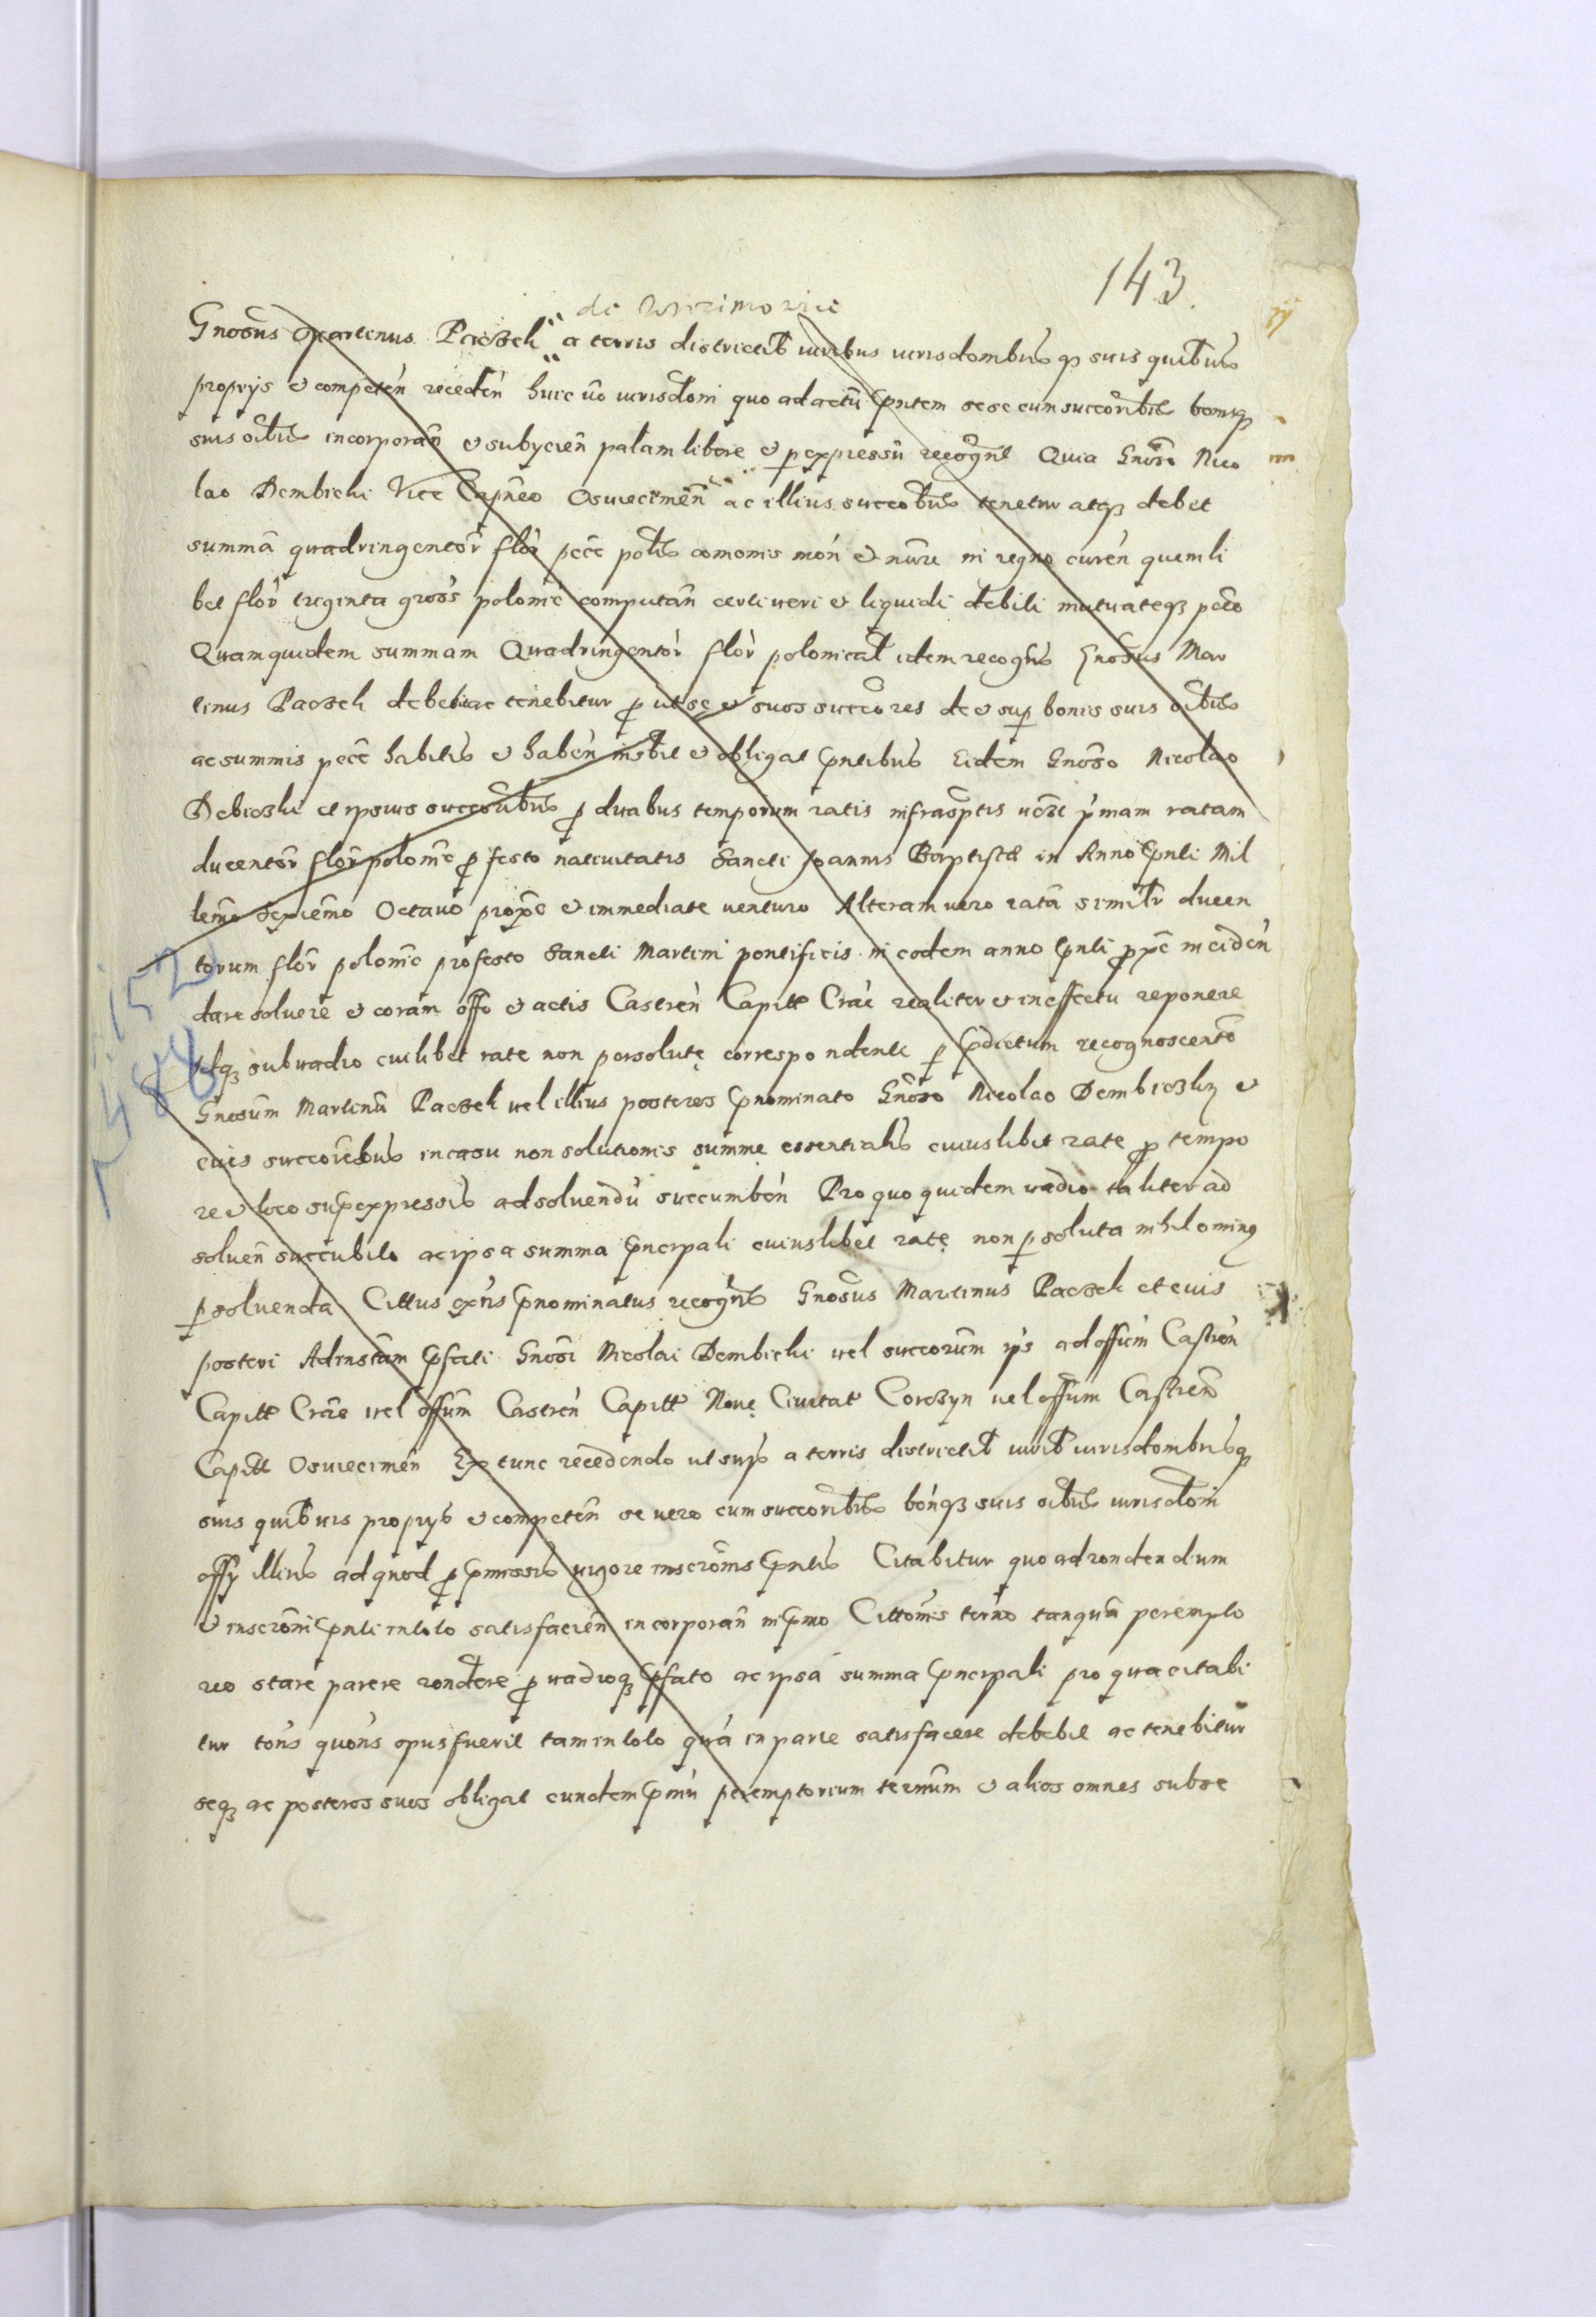 143.
Gnosus Martinus Paczek a terris districtib iuribus iurisdombus q suis quibus
proprijs et competen receden huic vo iurisdoni quo ad actu pntem sese cum succoribus bonisq
suis oibus incorporan et subycien palam libere et p expressu recognt Quia Gnoso Nico
lao Dembicki Vice Capneo Osuiecimen ac illius succobus tenetur atq debet
summa quadringentor flor pece polis comonis mon et nure in regno curen quemli
bet flor triginta gross polonic computan certi veri et liquidi debiti mutuateq pece
Quam quidem summam Quadringentor flor polonical idem recogns Gnosus Mar
tinus Paczek debebit ac tenebitur p ut se et suos succores de et sup bonis suis oibus
ac summis pece habitis et haben inscbit et obligat pntibus Eidem Gnoso Nicolao
Debicski et ipsius succoribus p duabus temporum ratis infrascptis vczt pmam ratam
ducentor flor polonic p festo nativitatis Sancti Joannis Baptiste in Anno pnti Mil
lemo Sexcemo Octavo proxe et immediate venturo Alteram vero rata similr ducen
torum flor polonic pro festo Sancti Martini pontificis in eodem anno pnti p xe inciden
dare solvere et coram offo et actis Castren Capitt Crac realiter et in effectu reponere
idq sub vadio cuilibet rate non persolute correspondente p pdictum recognoscente
Gnosum Martinu Paczek vel illius posteros pnominato Gnoso Nicolao Dembicski et
eius succoribus in casu non solutionis summe essentialis cuiuslibet rate p tempo
re et loco supexpressis ad solvendu succumben Pro quo quidem vadio taliter ad
solven succubito ac ipsa summa pncipali cuiuslibet rate non p soluta nihilominq
p solvenda Cittus exns pnominatus recogns Gnosus Martinus Paczek et eius
posteri Ad instam pfati Gnosi Nicolai Dembicki vel succorum ips ad officium Castren
Capitt Crac vel offum Castren Capitt Nove Civitat Corczyn vel offum Castren
Capitt Osuiecimen Ex tunc recedendo ut sups a terris districtib iurib iurisdombusq
suis quibusvis proprys et competen se vero cum succoribus bonqz suis oibus iurisdoni
offy illius ad quod p pmissis vigore inscronis pntis Citabitur quo ad rondendum
et inscroni pnti in toto satisfacien incorporan in pmo Cittonis termo tanqua perempto
rio stare parere rondere p vadioq pfato ac ipsa summa pncipali pro qua citabi
tur tons quons opus fuerit tam in toto qua in parte satisfacere debebit ac tenebitur
seq ac posteros suos obligat eundem pmu peremptorium termum et alios omnes subse